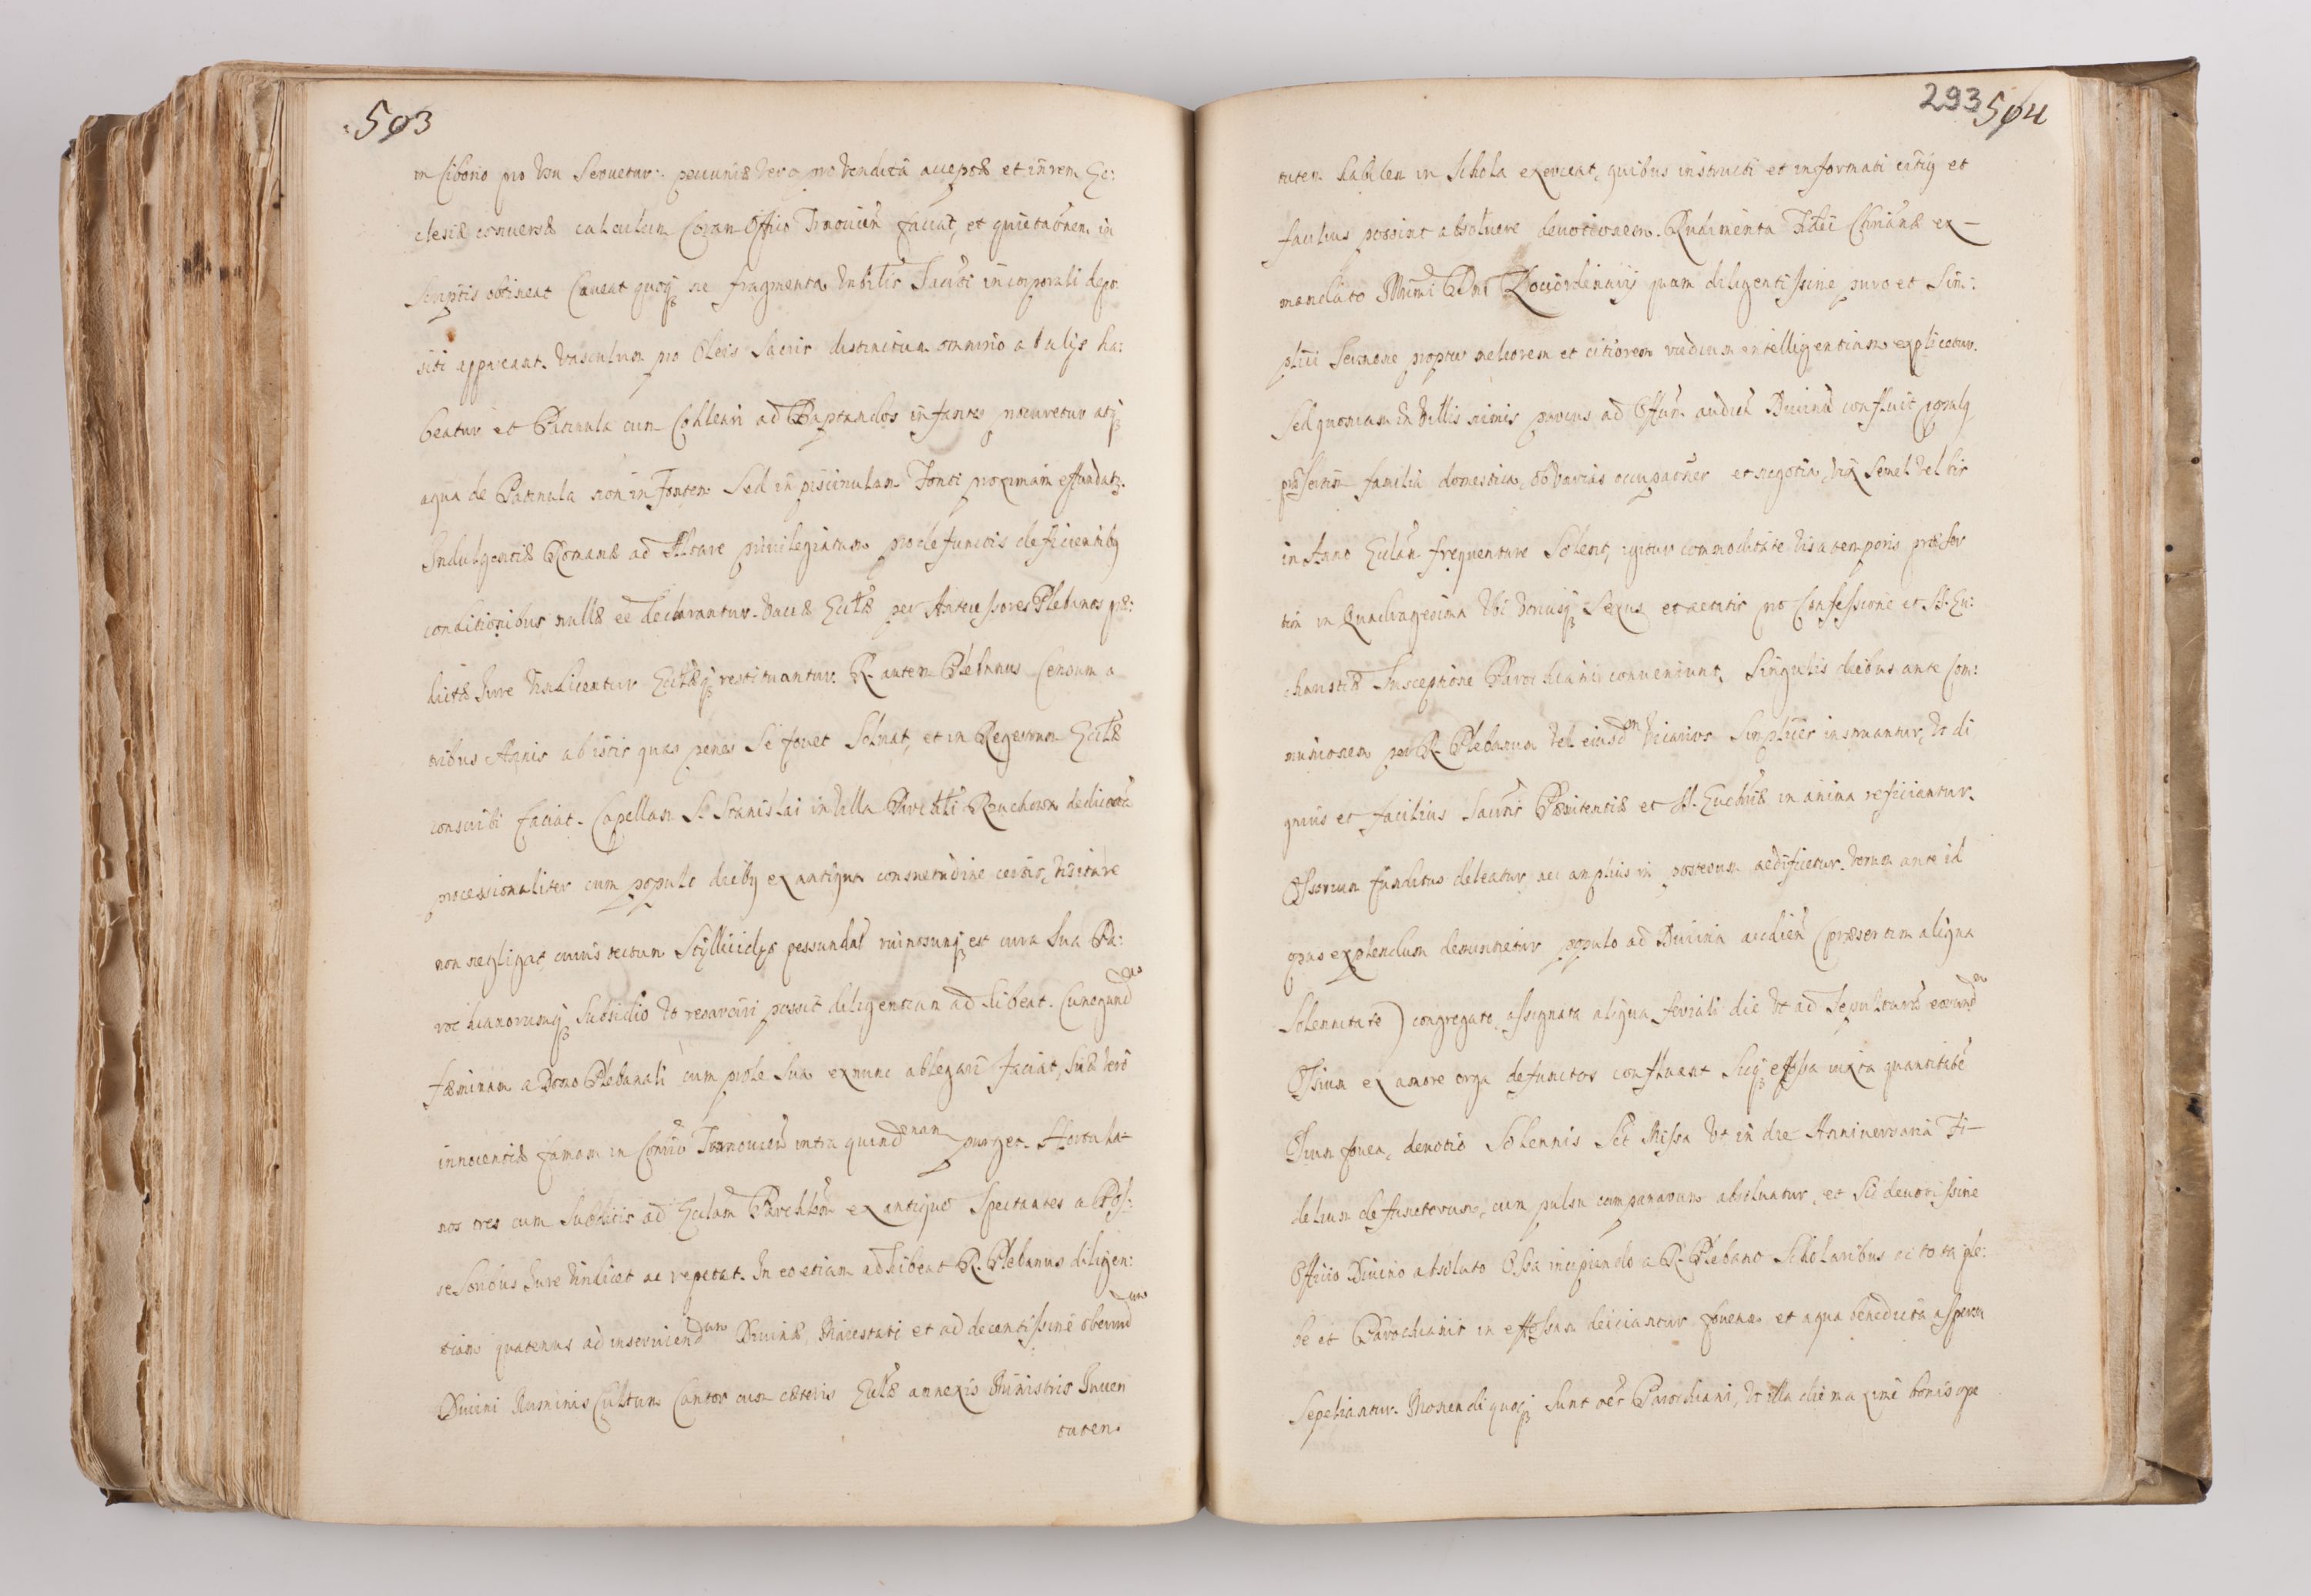 593
in Ciborio pro usu Servetur: pecuniæ vero pro vendita acceptæ et in rem Ec:
clesiæ conversæ calculum Coram Officio Trnovien faciat, et quietaonem in
Scriptis obtineat Caveat quoq3 ne fragmenta Subtilis Sacnti in corporali depo
siti appareant. Vasculum pro Oleis Sacris distinctum omnino ab alijs ha:
beatur et Patinula cum Cohleari ad Baptandos infantes procuretur atq3
aqua de Patinula non in fontem Sed in piscinulam Fonti proximam effundatr.
Indulgentiæ Romanæ ad Altare privilegiatum pro defunctis deficientibq
conditionibus nullæ eē declarantur. Vaccæ Ecclæ per Antecessores Plebanos præ:
dictæ Jure vindicentur Ecclæq3 restituantur. R. autem Plebanus Censum a
tribus Annis ab istis quas penes Se fovet Solvat, et in Regestrum Ecclæ
conscribi faciat. Capellam S. Stanislai in Villa Rouchow dedicata
processionaliter cum populo diebq ex antiqua consuetudine certis, visitare
non negligat cuius tectum Stillicidys pessundat ruinosumq3 est cura Sua Pa:
rochianorumq3 Subsidio ut resarciri possit diligentiam adhibeat. Cunegundem
fæminam a Domo Plebanali cum prole Sua exnunc ablegari faciat, Suæ vero
innocentiæ famam in Officio Trnovien intra quindenam purget. Hortula-
nos tres cum Subditis ad Ecclam Parchlem ex antiquo Spectantes a Pos:
sessoribus Jure vindicet ac repetat. In eo etiam adhibeat R. Plebanus diligen:
tiam quatenus ad inserviendum Divinæ, Maiestati et ad decentissime obeund
Divini Numinis Cultum Cantor cum cæteris Ecclæ annexis Ministris Juven
tutem
293 594
tutem habilem in Schola exerceat, quibus instructi et informati citiq et
facilius possint absolvere devotionem. Rudimenta Fidei Chrianæ ex-
mandato Illmi Dni Loci ordinarij quam diligentissime puro et Sim:
plici Sermone propter meliorem et citiorem rudium intelligentiam explicetur.
Sed quoniam in Villis nimis parcus ad Offum audien Divinu confluit Ppulq
præsertim familia domestica, ob varias occupaones et negotia, vix Semel vel bis
in Anno Eclam frequentare Solent, igitur commoditate visa temporis præser
tim in Quadragesima Ubi utriusq3 Sexus et aetatis pro Confessione et SS. Eu:
charistiæ Susceptione Parochiani conveniunt, Singulis diebus ante Com:
munionem per R. Plebanum vel eiusdem Vicarium Simpliter instruantur, ut di
gnius et facilius Sacnis Pænitentiæ et SS. Euchriæ in anima reficiantur.
Ossorium funditus deleatur nec amplius in posterum aedificetur. Verum ante id
opus explendum denuntietur populo ad Divina audien (præsertim aliqua
Solennitate) congregato, assignata aliqua feriali die ut ad Sepulturam eorundem
Ossium ex amore erga defunctos confluant Sicq3 effossa iuxta quantitate
Ossium fovea, devotio Solennis Sct Missa ut in die Anniversaria Fi-
delium defunctorum, cum pulsu campanarum absolvatur, et Sic devotissime
Officio Divino absoluto Ossa incipiendo a R. Plebano Scholaribus ac tota ple:
be et Parochianis in effossam deiciantur foveam et aqua benedicta aspersa
Sepeliantur. Monendi quoq3 Sunt oēs Parochiani, ut illa die maxime bonis ope